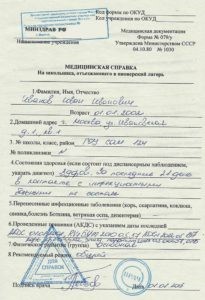 Код формы по ОКУД
Код учреждения по ОКУД
МИНЗДРАВ РФ
Наименование учреждения
Медицинская документация
Форма № 076/у
Утверждена Министерством СССР
04.10.80 № 1030
МЕДИЦИНСКАЯ СПРАВКА
На школьника, отъезжающего в пионерский лагерь
1.Фамилия, Имя, Отчество
Иванов Иван Иванович
Возраст 01.01.2002
2.Домашний адрес г. Москва ул. Ивановская
д.1, кв.1
3. № школы, класс, район ГОУ СОШ 124
№ поликлиники
4.Состояния здоровья (если состоит под диспансерным наблюдением,
указать диагноз) Здоров. За последние 21 день
в контакте с инфекционными
больными не состоял
5.Перенесенные инфекционные заболевания (корь, скарлатина, коклюш,
свинка, болезнь Боткина, ветряная оспа, дизентерия)
6.Проведенные прививки (АКДС) с указанием даты проведения
8.Рекомендуемый режим общий
Подпись врача
ДЛЯ
СПРАВОК
Дата